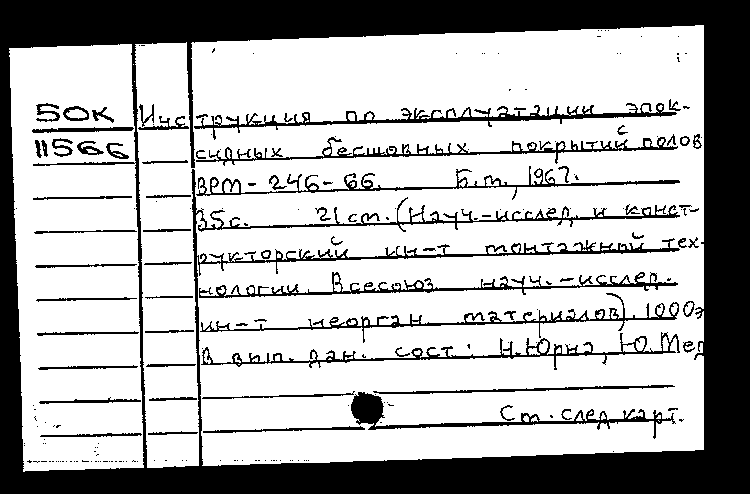 50К Инструкция по эксплуатации эпок-
11566 сидных бесшовных покрытий полов
ВРМ-246-66. Б.м., 1967.
35с. 21 см. (Науч.-исслед. и конст-
рукторский ин-т монтажной тех-
нологии. Всесоюз. науч.-исслед.
ин-т неорган. материалов). 1000э
В вып. дан. сост: Ю. Мед
См. след. карт.